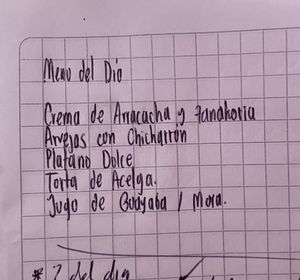 Menu del Dia
Crema de Arracacha y Zanahoria
Arvejas con Chicharrón
Platano Dulce
Torta de Acelga.
Jugo de Guayaba / Mora.
* 2 del dia